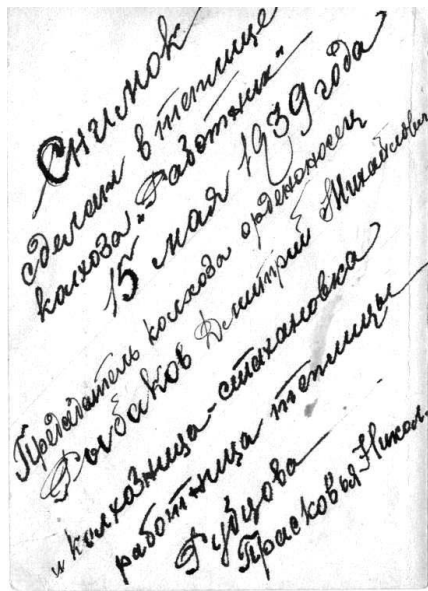 Снимок
сделан в теплице
колхоза „Работник"
15 мая 1939 года
Председатель колхоза орденоносец
Рыбаков Дмитрий Михайлович
и колхозница-стахановка
работница теплицы
Рубцова
Прасковья Никол.